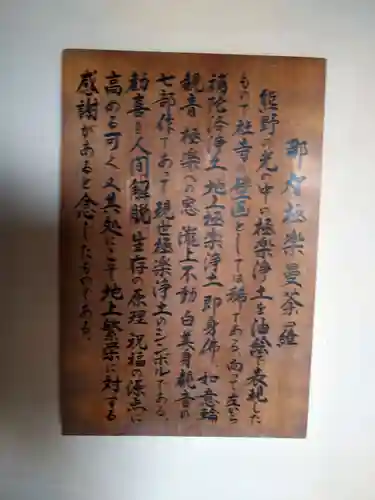 那智極楽曼荼羅
熊野の光の中の極楽浄土を油絵で表現した
もので社寺の壁画としては稀である、向って左から
補陀洛浄土 地上極楽浄土 即身佛 如意輪
観音 極楽への窓 瀧上不動 白英身観音の
七部作であって現世極楽浄土のシンボルである。
勧喜と人間解脱 生存の原理 祝福の源点に
高める可く又其処にこそ地上繁栄に対する
感謝があると念じたものである。